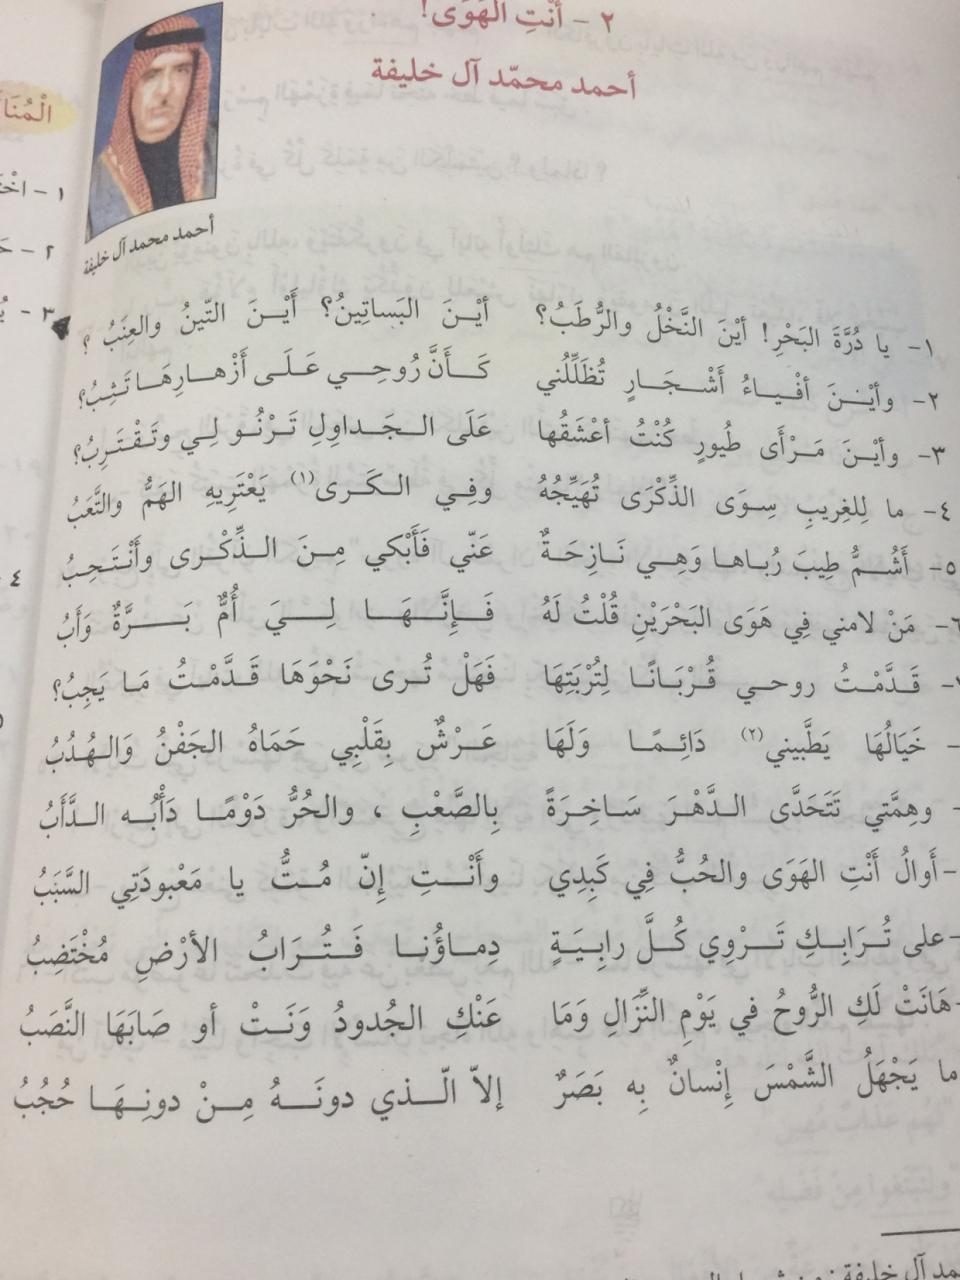 ٢ - أَنْتِ الهَوَى!
أحمد محمّد آل خليفة
أحمد محمد آل خليفة
١- يا دُرَّةَ البَحْرِ! أينَ النَّخْلُ والرُّطَبُ؟ أيْـنَ البَساتِينُ؟ أَيْـنَ التّينُ والعِنَبُ؟
٢- وأيْـنَ أفْيـاءُ أشْـجَـارٍ تُظَلِّلُني كَـأَنَّ رُوحِـي عَـلَـى أَزْهـارِهَـا تَثِبُ؟
٣- وأيْـنَ مَـرْأَى طُيورٍ كُنْتُ أعْشَقُها عَلَى الـجَـداوِلِ تَـرْنُـو لِي وتَقْتَرِبُ؟
٤- ما لِلغِريبِ سِوَى الذِّكْرَى تُهَيِّجُهُ وفـي الـكَـرى(١) يَعْتَرِيهِ الهَمُّ والتَّعَبُ
٥- أَشُـمُّ طِيبَ رُباها وَهِـي نَـازِحَـةٌ عَنّي فَأَبْكي مِـنَ الـذِّكْـرى وأَنْتَحِبُ
٦- مَنْ لامني فِي هَوَى البَحْرَيْنِ قُلْتُ لَهُ فَـإِنَّـهَـا لِـيَ أُمٌّ بَـرَّةٌ وَأَبُ
٧- قَـدَّمْـتُ روحـي قُـرْبَـانًـا لِتُرْبَتِهَا فَهَلْ تُـرى نَحْوَهَا قَـدَّمْـتُ مَـا يَجِبُ؟
- خَيَالُهَا يَطَّبيني(٢) دَائِـمًـا وَلَهَا عَـرْشٌ بِقَلْبِي حَمَاهُ الجَفْنُ وَالـهُـدُبُ
- وهِمَّتي تَتَحَدَّى الـدَّهْـرَ سَـاخِـرَةً بِالصَّعْبِ ، والحُرُّ دَوْمًـا دَأْبُـه الـدَّأَبُ
- أَوالُ أَنْتِ الهَوَى والحُبُّ فِي كَبِدِي وأَنْـتِ إِنّ مُـتُّ يا مَعْبودَتِي السَّبَبُ
- على تُـرَابِـكِ تَـرْوِي كُـلَّ رابِيَـةٍ دِماؤُنـا فَـتُـرَابُ الأرْضِ مُخْتَضِبُ
- هَانَتْ لَكِ الرُّوحُ في يَوْمِ النِّزَالِ وَمَا عَنْكِ الجُدودُ وَنَـتْ أو صَابَهَا النَّصَبُ
ما يَجْهَلُ الشَّمْسَ إِنْسانٌ بِه بَصَرٌ إلاّ الّـذي دونَـهُ مِـنْ دونِـهَـا حُجُبُ
١ -
٢ -
٣ -
٤
آل خليفة